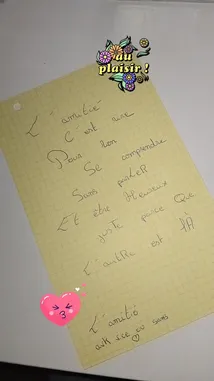 du
plaisir !
L'amitié
C'est une
Pour bon
Se comprendre
Sans parler
Et être Heureux
juste parce Que
L'autre est là
L'amitié